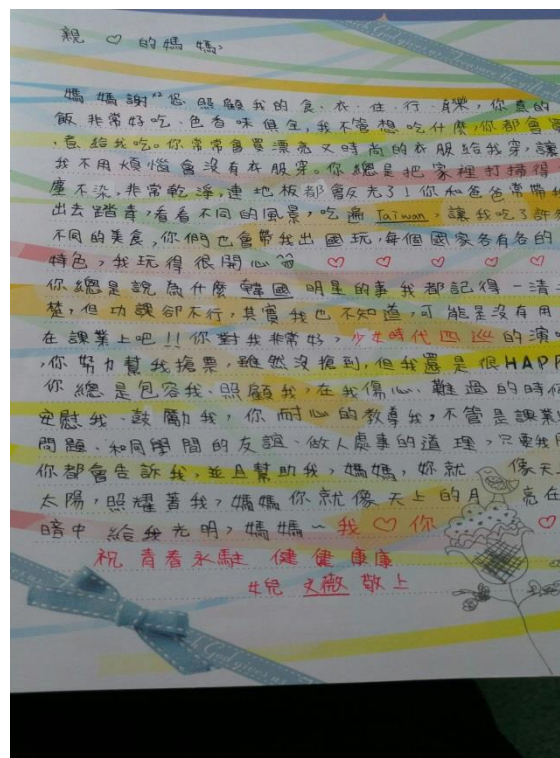 親♡的媽媽:
媽媽謝"您照顧我的食、衣、住、行、育樂,你煮的
飯非常好吃、色香味俱全,我不管想吃什麼,你都會買
、煮給我吃。你常常會買漂亮又時尚的衣服給我穿,讓
我不用煩惱會沒有衣服穿。你總是把家裡打掃得
塵不染,非常乾淨,連地板都會反光了!你和爸爸常帶我
出去踏青,看看不同的風景,吃遍Taiwan,讓我吃了許
不同的美食,你們也會帶我出國玩,每個國家各有各的
特色,我玩得很開心 ♡ ♡ ♡ ♡
你總是說為什麼韓國明星的事我都記得一清
楚,但功課卻不行,其實我也不知道,可能是沒有用
在課業上吧!!你對我非常好,少女時代四巡的演
,你努力幫我搶票,雖然沒搶到,但我還是很HAPP
你總是包容我、照顧我,在我傷心、難過的時候
安慰我、鼓勵我,你耐心的教導我,不管是課業
問題、和同學間的友誼、做人處事的道理,只要我
你都會告訴我,並且幫助我,媽媽,妳就像天
太陽,照耀著我,媽媽你就像天上的月亮在
暗中給我光明,媽媽~我♡你 ♡
祝青春永駐 健健康康
女兒 文薇 敬上